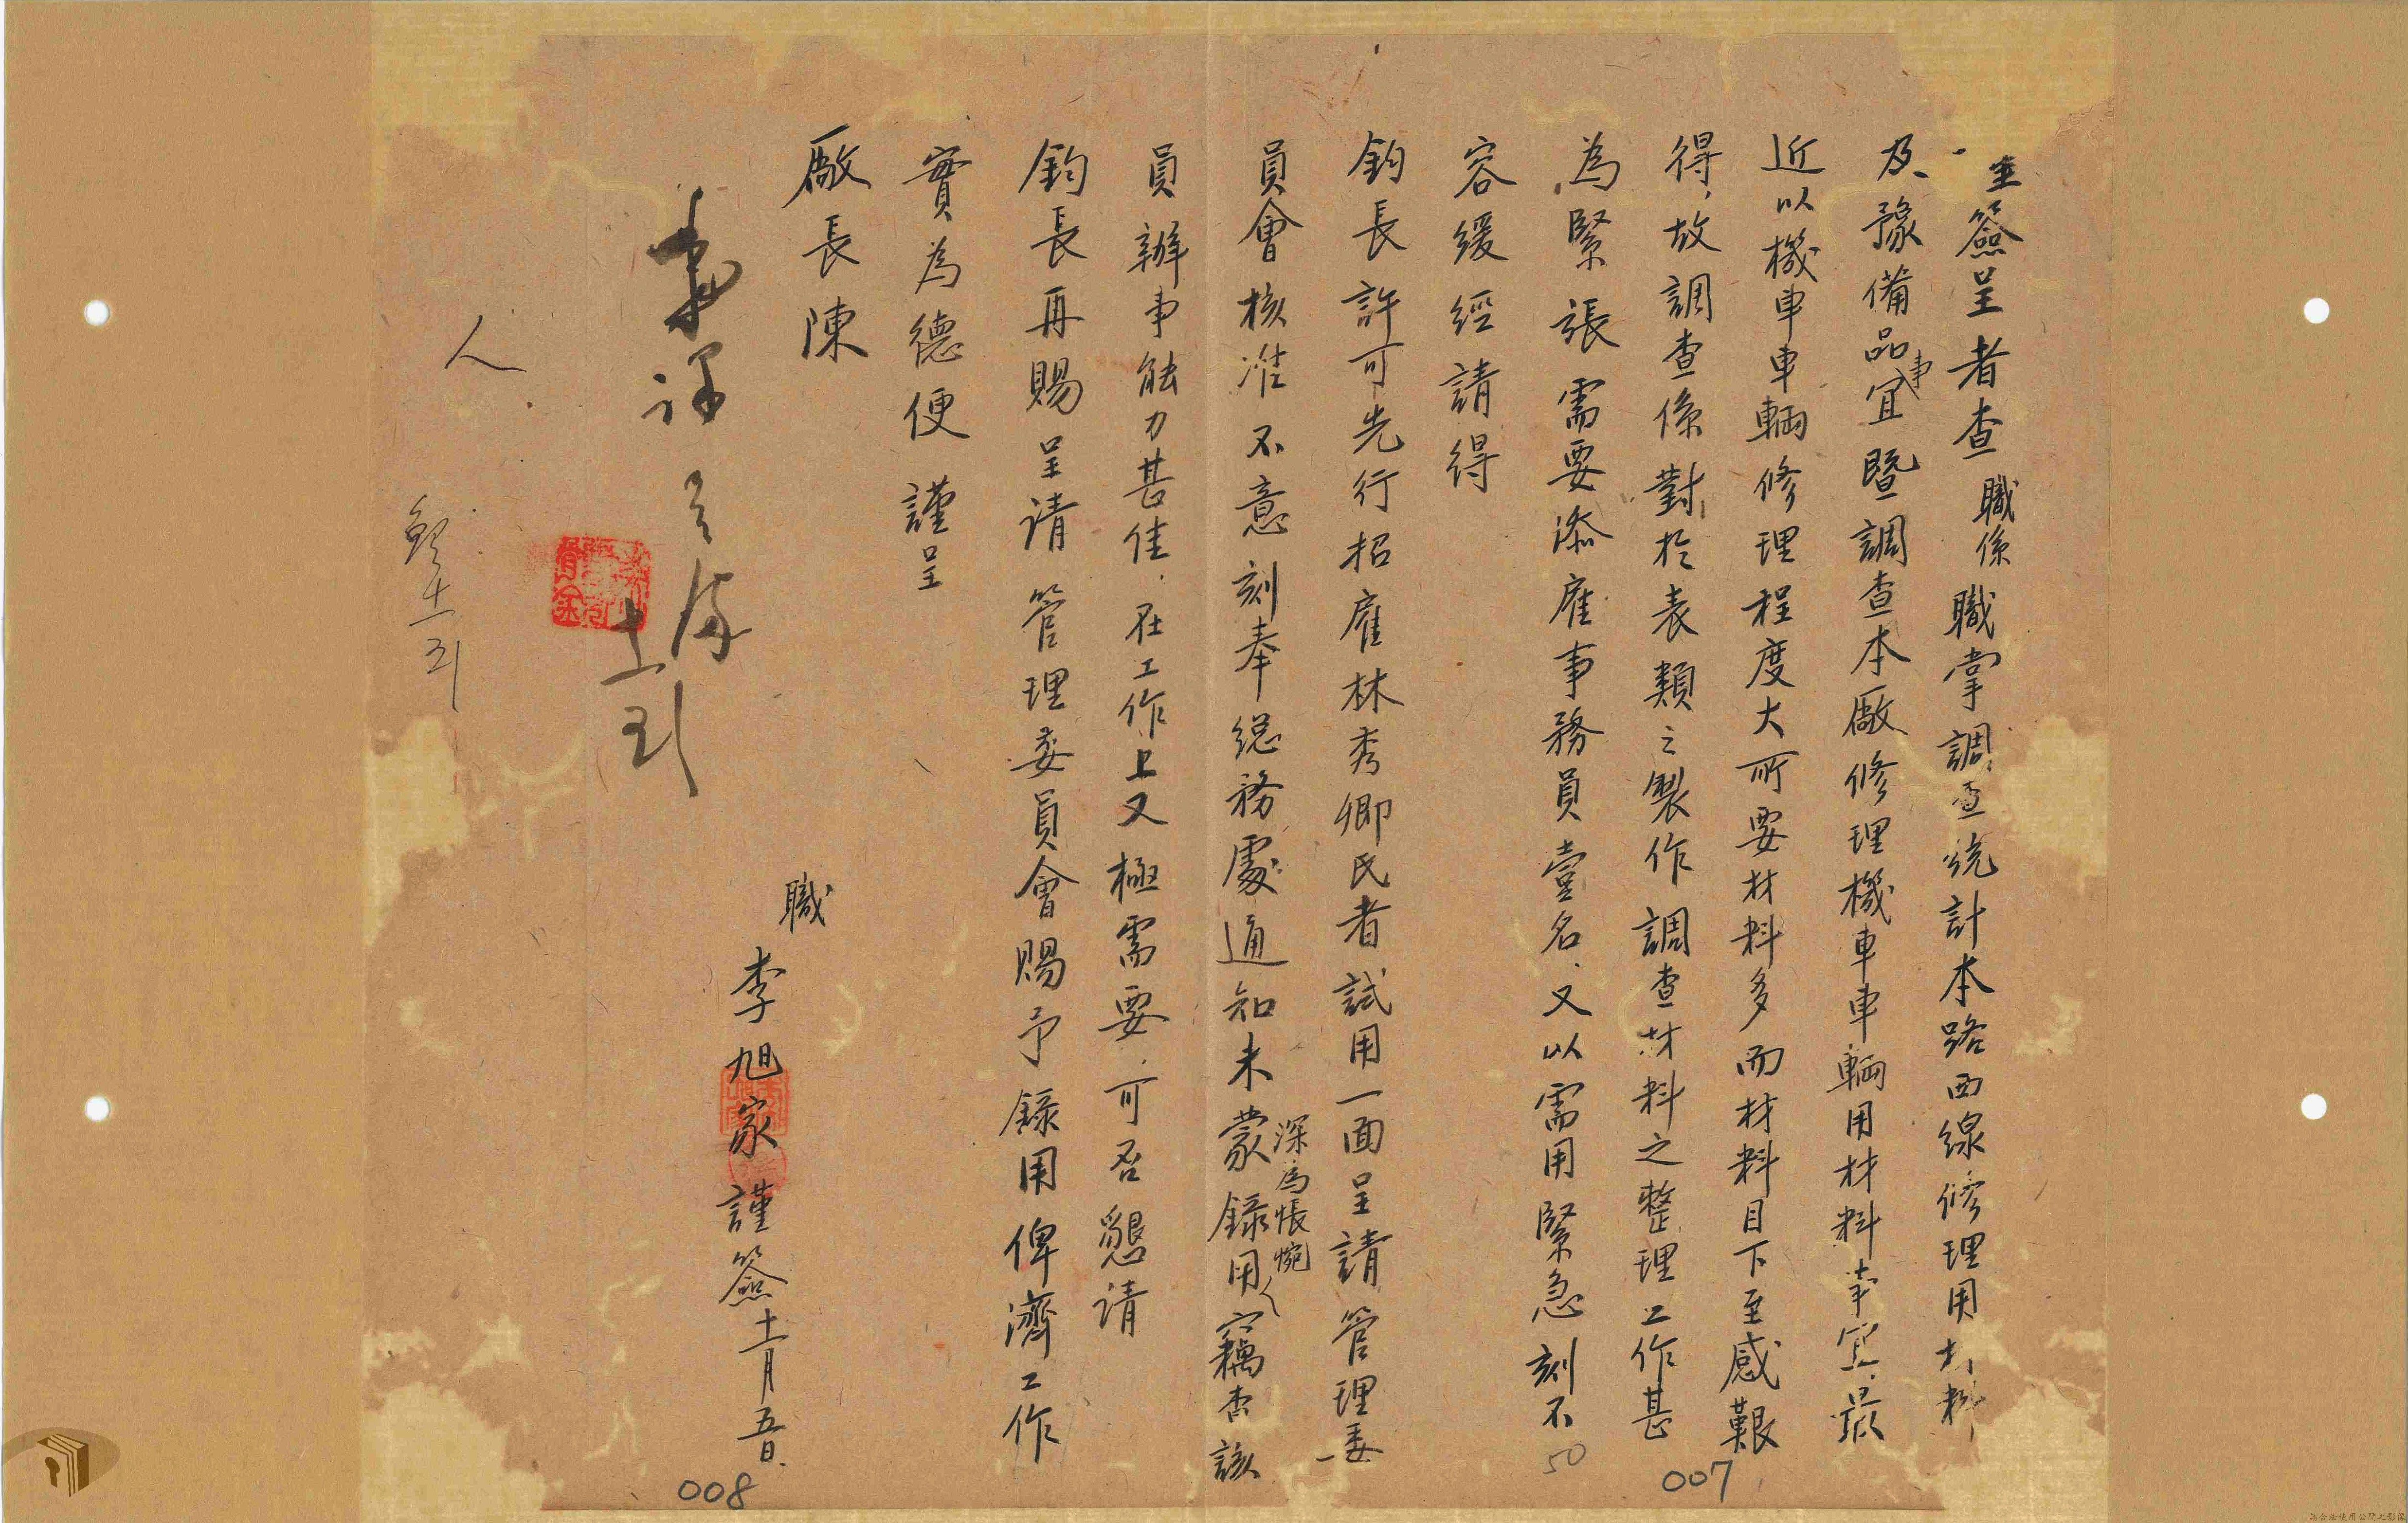 簽呈者查職係職掌調查統計本路西線修理用材料
及豫備品事宜暨調查本廠修理機車車輛用材料事宜、最
近以機車車輛修理程度大所要材料多而材料目下至感艱
得、故調查係對於表類之製作調查材料之整理工作甚
為緊張需要添雇事務員壹名、又以需用緊急刻不
容緩經請得
鈞長許可先行招雇林秀卿氏者試用一面呈請管理委
員會核准不意刻奉總務處通知未蒙錄用深為悵惋竊查該
員辦事能力甚佳、在工作上又極需要、可否懇請
鈞長再賜呈请管理委員會賜予錄用俾濟工作
實為德便謹呈
廠長陳
職李旭家謹簽十一月五日
人
50
007
008
請合法使用公開之影像